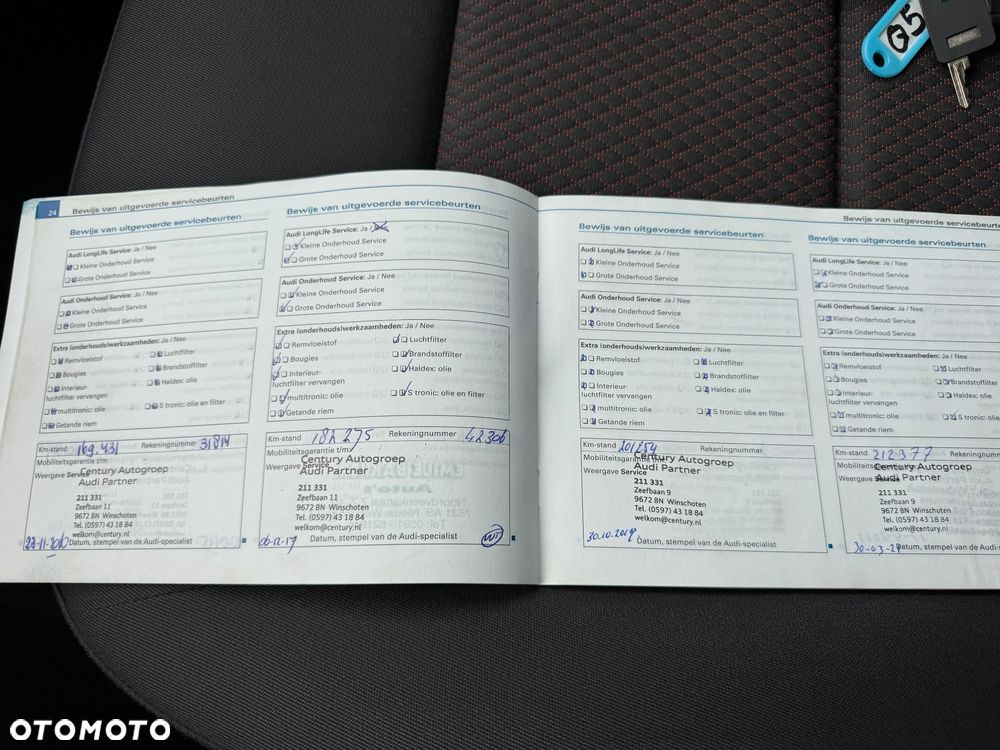 Q5
24
Bewijs van uitgevoerde servicebeurten
Bewijs van uitgevoerde servicebeurten
Audi LongLife Service: Ja / Nee
Kleine Onderhoud Service
Grote Onderhoud Service
Audi Onderhoud Service: Ja / Nee
Kleine Onderhoud Service
Grote Onderhoud Service
Extra (onderhouds)werkzaamheden: Ja / Nee
Remvloeistof
Luchtfilter
Bougies
Brandstoffilter
Interieur-
luchtfilter vervangen
Haldex: olie
multitronic: olie
S tronic: olie en filter
Getande riem
Km-stand 169.431 Rekeningnummer 31814
Mobiliteitsgarantie t/m:
Weergave Service
Century Autogroep
Audi Partner
211 331
Zeefbaan 11
9672 BN Winschoten
Tel. (0597) 43 18 84
welkom@century.nl
Datum, stempel van de Audi-specialist
Bewijs van uitgevoerde servicebeurten
Audi LongLife Service: Ja / Nee
Kleine Onderhoud Service
Grote Onderhoud Service
Audi Onderhoud Service: Ja / Nee
Kleine Onderhoud Service
Grote Onderhoud Service
Extra (onderhouds)werkzaamheden: Ja / Nee
Remvloeistof
Luchtfilter
Bougies
Brandstoffilter
Interieur-
luchtfilter vervangen
Haldex: olie
multitronic: olie
S tronic: olie en filter
Getande riem
Km-stand 182 275 Rekeningnummer 42306
Mobiliteitsgarantie t/m:
Weergave Service
Century Autogroep
Audi Partner
211 331
Zeefbaan 11
9672 BN Winschoten
Tel. (0597) 43 18 84
welkom@century.nl
06-12-17 Datum, stempel van de Audi-specialist
Bewijs van uitgevoerde servicebeurten
Audi LongLife Service: Ja / Nee
Kleine Onderhoud Service
Grote Onderhoud Service
Audi Onderhoud Service: Ja / Nee
Kleine Onderhoud Service
Grote Onderhoud Service
Extra (onderhouds)werkzaamheden: Ja / Nee
Remvloeistof
Luchtfilter
Bougies
Brandstoffilter
Interieur-
luchtfilter vervangen
Haldex: olie
multitronic: olie
S tronic: olie en filter
Getande riem
Km-stand 201254 Rekeningnummer
Mobiliteitsgarantie t/m:
Weergave Service
Century Autogroep
Audi Partner
211 331
Zeefbaan 9
9672 BN Winschoten
Tel. (0597) 43 18 84
welkom@century.nl
30.10.2019 Datum, stempel van de Audi-specialist
Bewijs van uitgevoerde servicebeurten
Bewijs van uitgevoerde servicebeurten
Audi LongLife Service: Ja / Nee
Kleine Onderhoud Service
Grote Onderhoud Service
Audi Onderhoud Service: Ja / Nee
Kleine Onderhoud Service
Grote Onderhoud Service
Extra (onderhouds)werkzaamheden: Ja / Nee
Remvloeistof
Luchtfilter
Bougies
Brandstoffilter
Interieur-
luchtfilter vervangen
Haldex: olie
multitronic: olie
S tronic: olie en
Getande riem
Km-stand 212377 Rekeningnum
Mobiliteitsgarantie t/m:
Weergave Service
Century Autogroep
Audi Partner
211 331
Zeefbaan 9
9672 BN Winschoten
Tel. (0597) 43 18 84
welkom@century.nl
Datum, stempel van de Audi-
OTOMOTO